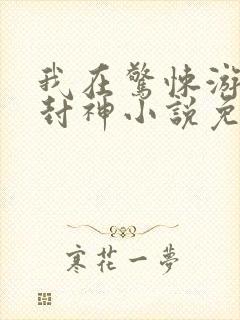 我在驚悚游
封神小説免
寒花一夢